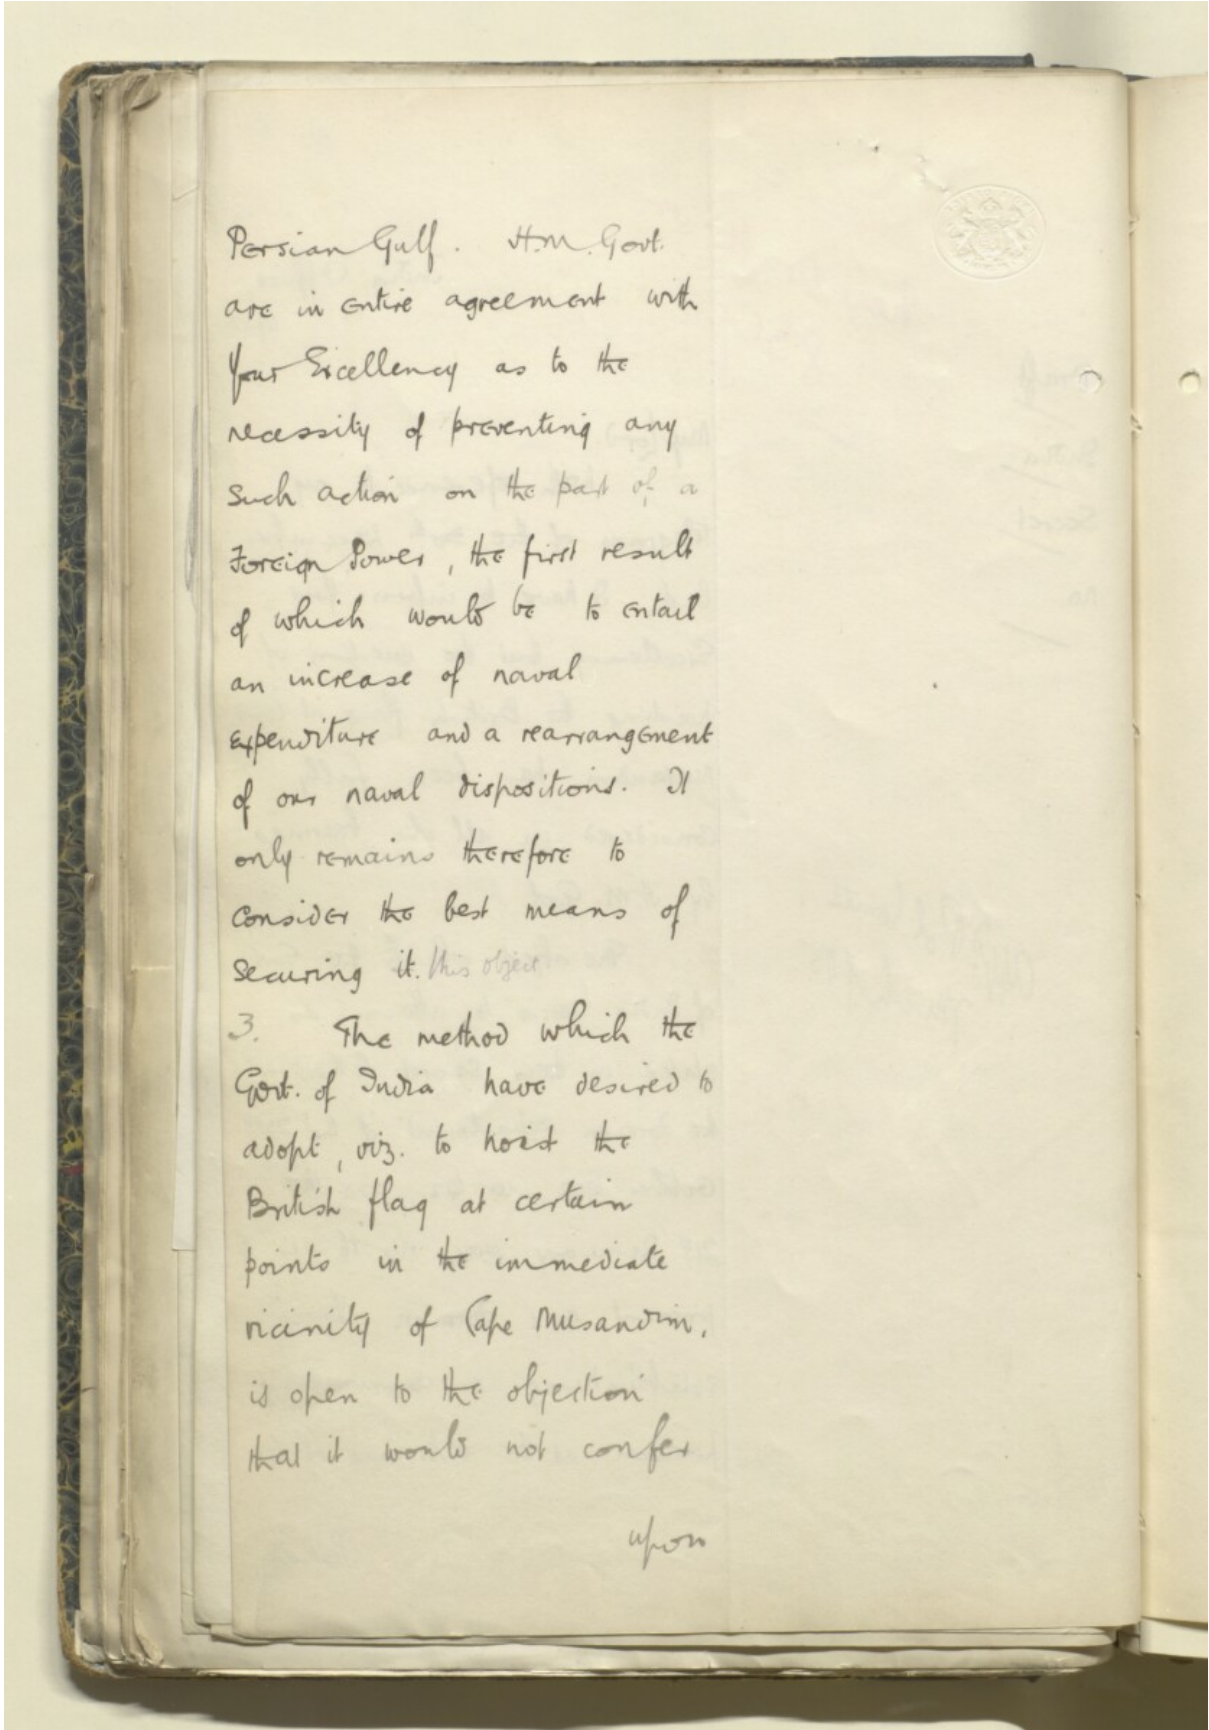 Persian Gulf. H.M. Govt.
are in entire agreement with
Your Excellency as to the
necessity of preventing any
such action on the part of a
Foreign Power, the first result
of which would be to entail
an increase of naval
expenditure and a rearrangement
of our naval dispositions. It
only remains therefore to
consider the best means of
securing it. this object
3. The method which the
Govt. of India have desired to
adopt, viz. to hoist the
British flag at certain
points in the immediate
vicinity of Cape Musandim,
is open to the objection
that it would not confer
upon